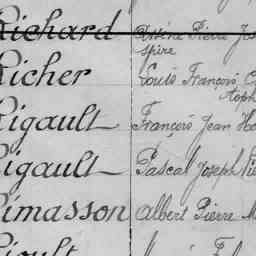 Richard Pierre
spire
Richer Louis François
Rigault François Jean
Rigault Pascal Joseph
Rimasson Albert Pierre